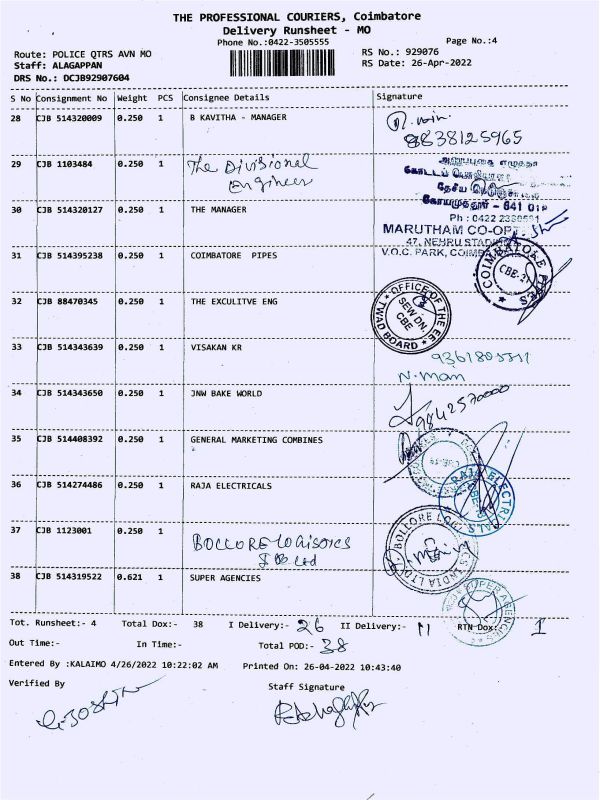 THE PROFESSIONAL COURIERS, Coimbatore
Delivery Runsheet - MO
Phone No.:0422-3505555
Page No.:4
Route: POLICE QTRS AVN MO
RS No.: 929076
Staff: ALAGAPPAN
RS Date: 26-Apr-2022
DRS No.: DCJB92907604
S No Consignment No Weight PCS Consignee Details Signature
28 CJB 514320009 0.250 1 B KAVITHA - MANAGER
9838125965
29 CJB 1103484 0.250 1 The Divisional
Engineer
கோயமுத்தூர் - 641 018
Ph : 0422 2380591
30 CJB 514320127 0.250 1 THE MANAGER
MARUTHAM CO-OPT
47, NEHRU STADIUM
V.O.C. PARK, COIMBATORE
31 CJB 514395238 0.250 1 COIMBATORE PIPES
COIMBATORE PIPES
CBE-21
32 CJB 88470345 0.250 1 THE EXCULITVE ENG
OFFICE OF THE EE
SEW DN.
CBE
TWAD BOARD
33 CJB 514343639 0.250 1 VISAKAN KR
N. Mani
34 CJB 514343650 0.250 1 JNW BAKE WORLD
9842570000
35 CJB 514408392 0.250 1 GENERAL MARKETING COMBINES
36 CJB 514274486 0.250 1 RAJA ELECTRICALS
RAJA ELECTRICALS
37 CJB 1123001 0.250 1 BOLLORE LOGISTICS
I P Ltd
BOLLORE LOGISTICS INDIA LTD.
38 CJB 514319522 0.621 1 SUPER AGENCIES
SUPER AGENCIES
Tot. Runsheet:- 4 Total Dox:- 38 I Delivery:- 26 II Delivery:- 11 RTN Dox:- 1
Out Time:- In Time:- Total POD:- 38
Entered By :KALAIMO 4/26/2022 10:22:02 AM Printed On: 26-04-2022 10:43:40
Verified By Staff Signature